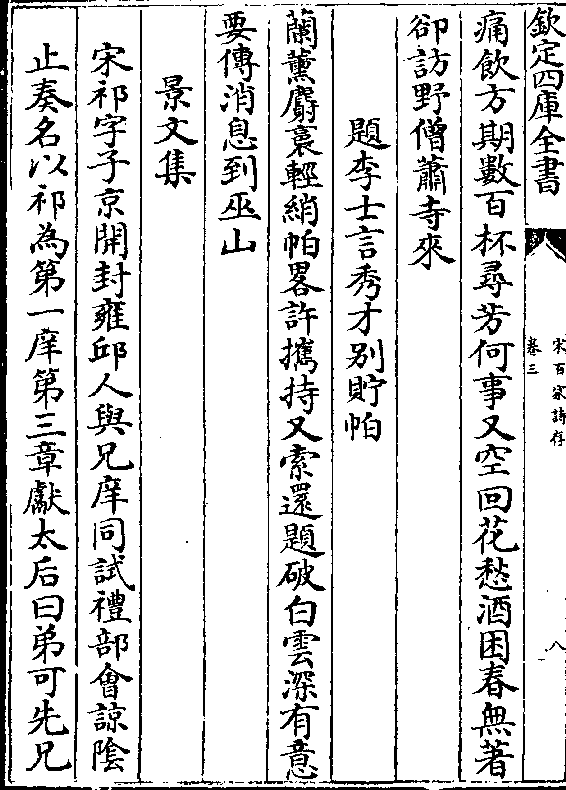 欽定四庫全書
宋百家詩存
卷三
八
痛飲方期數百杯尋芳何事又空回花愁酒困春無著
卻訪野僧蕭寺來
題李士言秀才別貯帕
蘭薰麝裛輕綃帕畧許擕持又索還題破白雲深有意
要傳消息到巫山
景文集
宋祁字子京開封雍邱人與兄庠同試禮部會諒陰
止奏名以祁為第一庠第三章獻太后曰弟可先兄